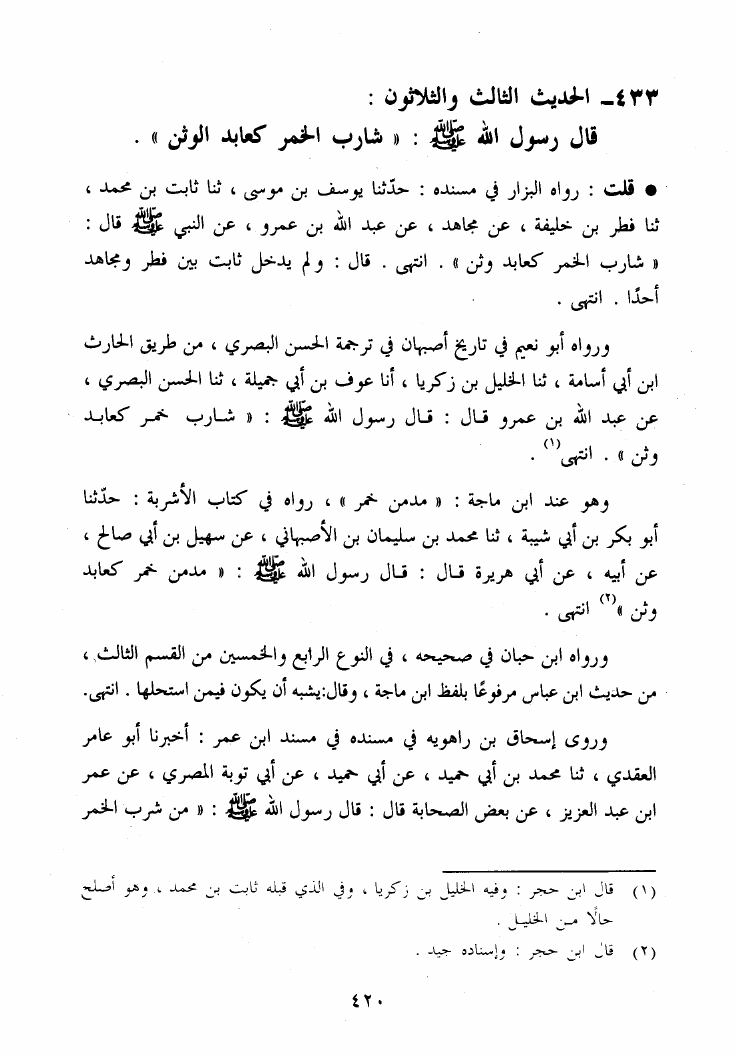 ٤٣٣ـ الحديث الثالث والثلاثون :
قال رسول الله ﷺ : « شارب الخمر كعابد الوثن » .
● قلت : رواه البزار في مسنده : حدّثنا يوسف بن موسى ، ثنا ثابت بن محمد ،
ثنا فطر بن خليفة ، عن مجاهد ، عن عبد الله بن عمرو ، عن النبي ﷺ قال :
« شارب الخمر كعابد وثن » . انتهى . قال : ولم يدخل ثابت بين فطر ومجاهد
أحدًا . انتهى .
ورواه أبو نعيم في تاريخ أصبهان في ترجمة الحسن البصري ، من طريق الحارث
ابن أبي أسامة ، ثنا الخليل بن زكريا ، أنا عوف بن أبي جميلة ، ثنا الحسن البصري ،
عن عبد الله بن عمرو قال : قال رسول الله ﷺ : « شارب خمر كعابد
وثن » . انتهى(١) .
وهو عند ابن ماجة : « مدمن خمر » ، رواه في كتاب الأشربة : حدّثنا
أبو بكر بن أبي شيبة ، ثنا محمد بن سليمان بن الأصبهاني ، عن سهيل بن أبي صالح ،
عن أبيه ، عن أبي هريرة قال : قال رسول الله ﷺ : « مدمن خمر كعابد
وثن »(٢) انتهى .
ورواه ابن حبان في صحيحه ، في النوع الرابع والخمسين من القسم الثالث ،
من حديث ابن عباس مرفوعًا بلفظ ابن ماجة ، وقال:يشبه أن يكون فيمن استحلها . انتهى.
وروى إسحاق بن راهويه في مسنده في مسند ابن عمر : أخبرنا أبو عامر
العقدي ، ثنا محمد بن أبي حميد ، عن أبي حميد ، عن أبي توبة المصري ، عن عمر
ابن عبد العزيز ، عن بعض الصحابة قال : قال رسول الله ﷺ : « من شرب الخمر
(١) قال ابن حجر : وفيه الخليل بن زكريا ، وفي الذي قبله ثابت بن محمد ، وهو أصلح
حالًا من الخليل .
(٢) قال ابن حجر : وإسناده جيد .
٤٢٠